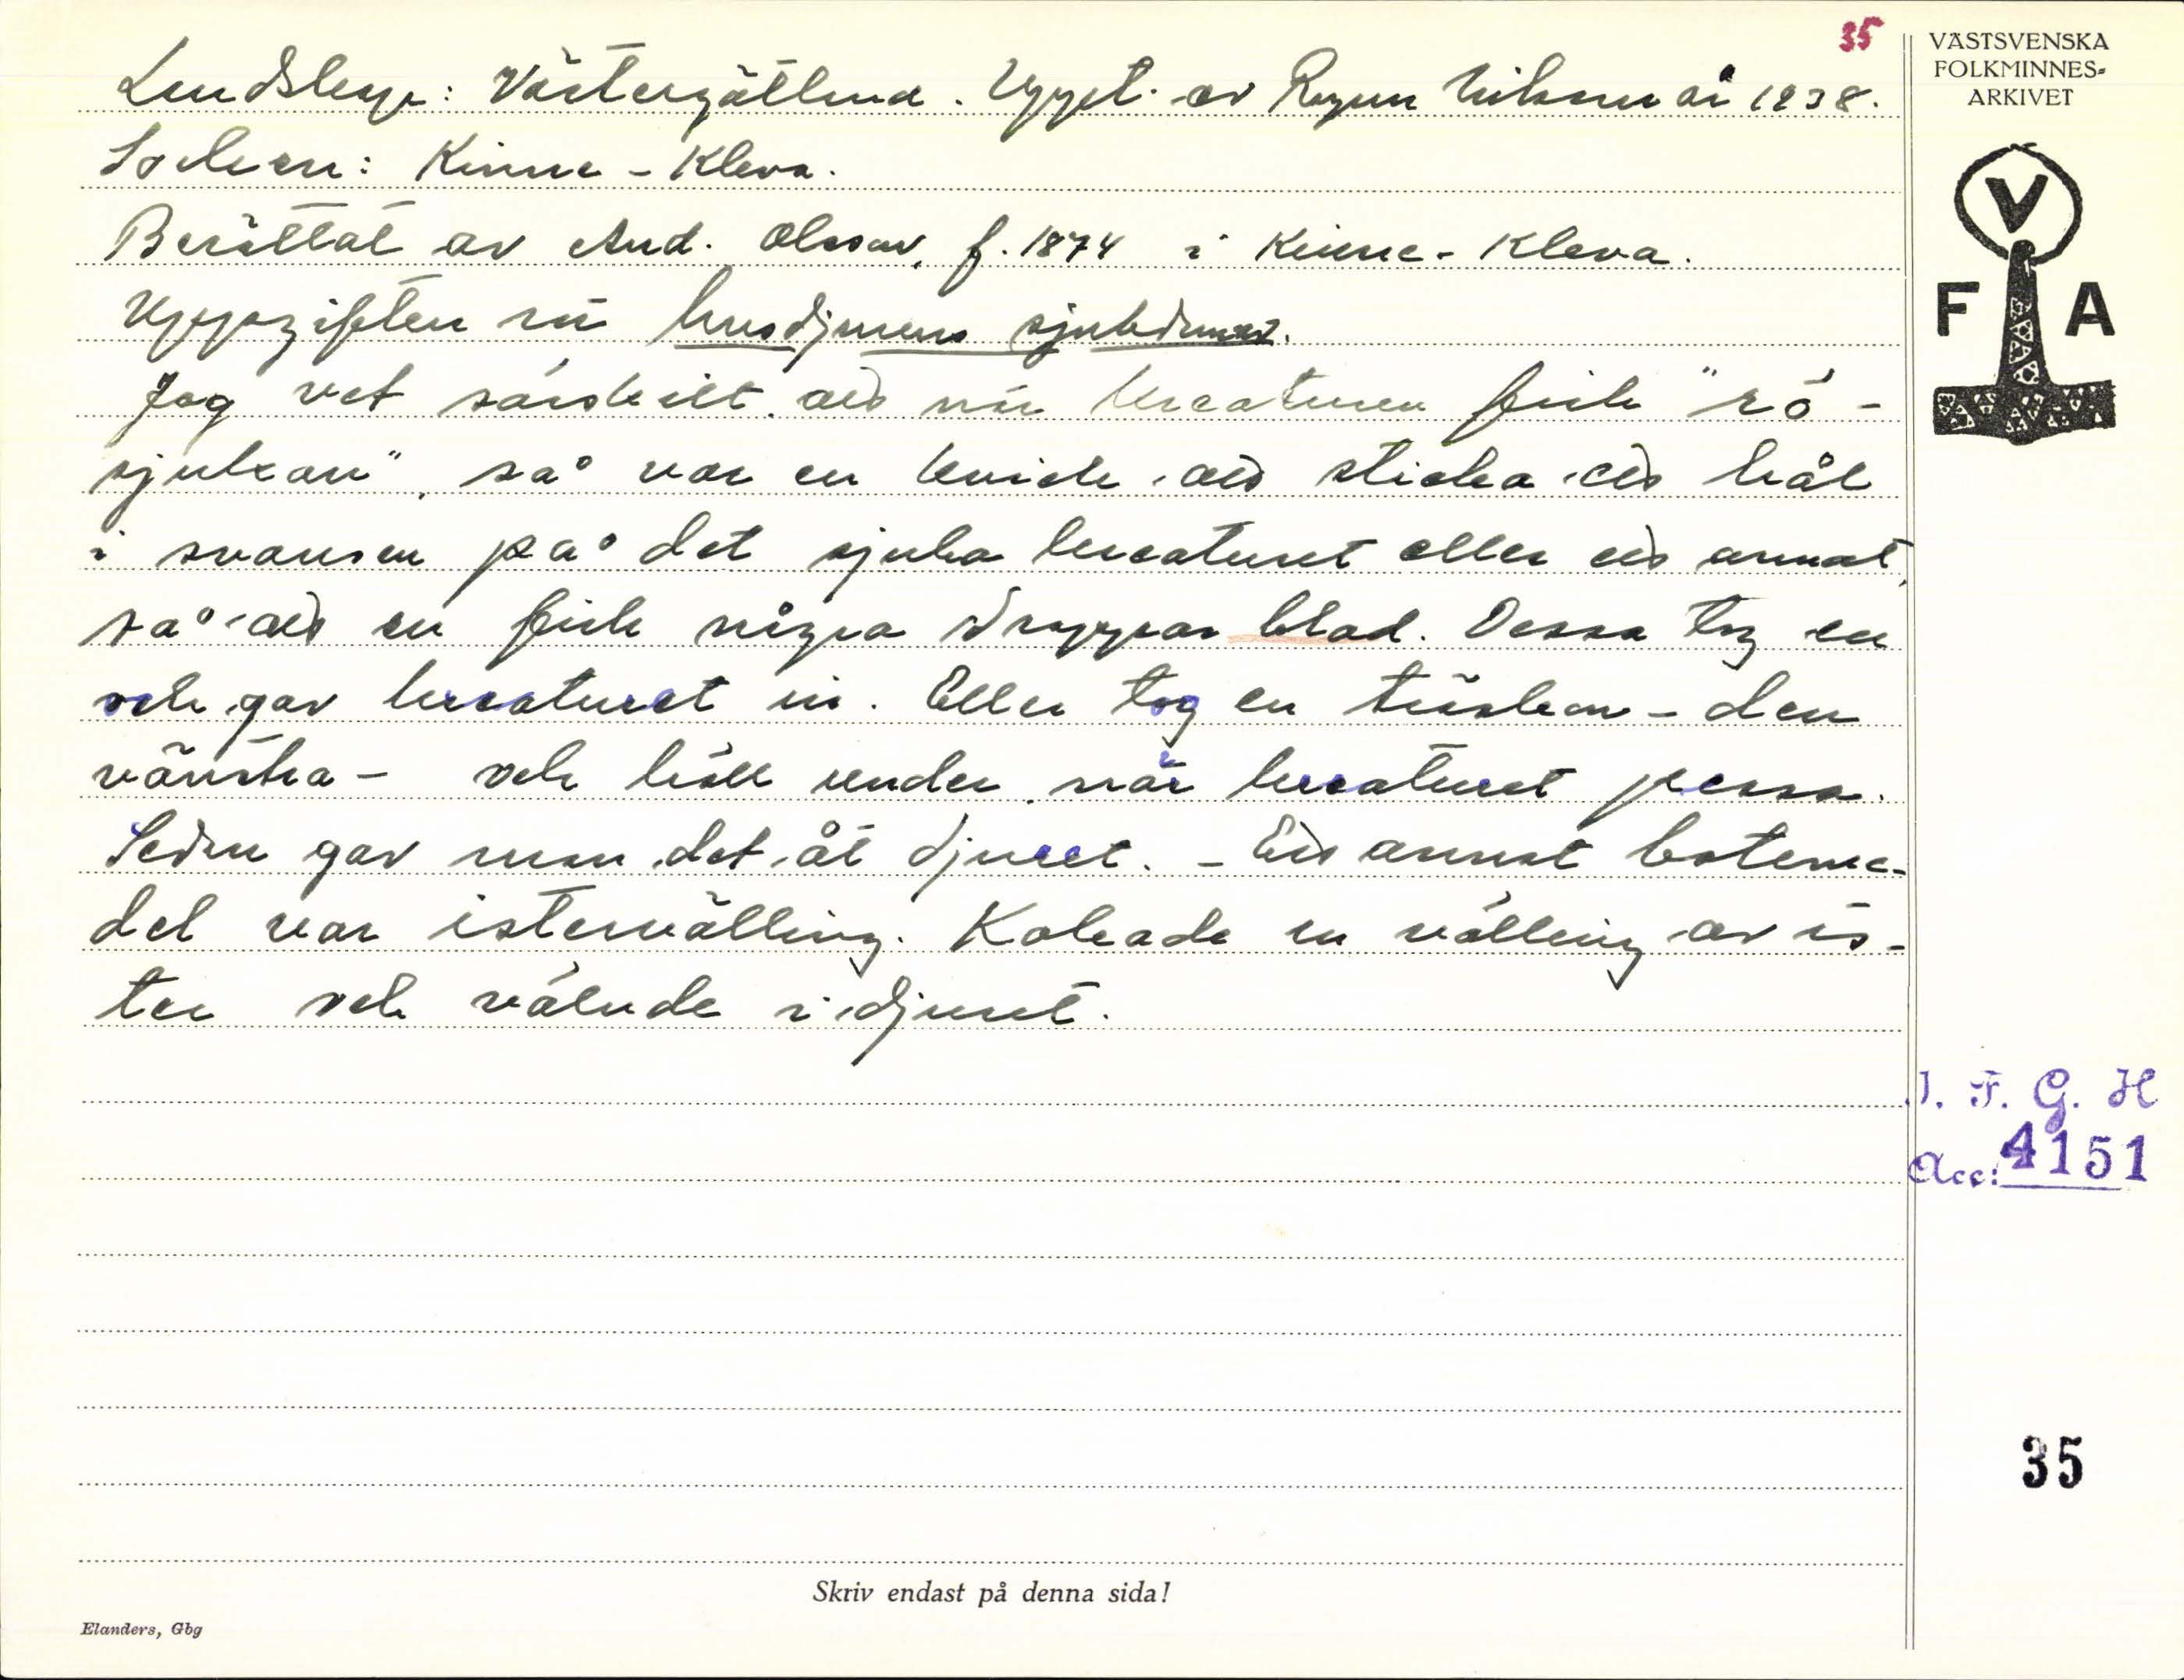 35
VÄSTSVENSKA
FOLKMINNES-
ARKIVET
Landskap: Västergötland. Uppt. av Ragnar Nilsson år 1938.
Socken: Kinne-Kleva.
Berättat av And. Olsson, f. 1874 i Kinne-Kleva.
Uppgiften rör husdjurens sjukdomar.
Jag vet särskilt att när kreaturen fick "rö-
sjukan", så var en knick att sticka ett hål
i svansen på det sjuka kreaturet eller ett annat,
så att en fick några droppar blod. Dessa tog en
och gav kreaturet in. Eller tog en träskon - den
vänstra - och höll under när kreaturet pessa.
Sedan gav man det åt djuret. - Ett annat boteme-
del var istervälling. Kokade en välling av is-
ter och välvde i djuret.
V
F A
I. F. G. H
Acc: 4151
35
Skriv endast på denna sida!
Elanders, Gbg